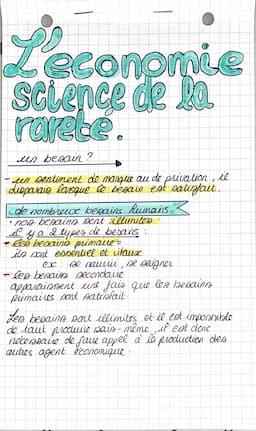 L'economie
science de la
rareté.
un besoin ?
- un sentiment de manque ou de privation, il
disparais lorsque le besoin est satisfait.
de nombreux besoins humains
• nos besoins sont illimités
il y a 2 types de besoins :
- les besoins primaire =
ils sont essentiel et vitaux
ex : se nourrir, se soigner
- les besoins secondaire
apparaissent une fois que les besoins
primaires sont satisfait.
Les besoins sont illimités et il est impossible
de tout produire sois-même, il est donc
nécessaire de faire appel à la production des
autres agent économique.